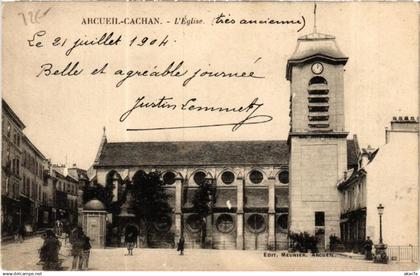 72E
ARCUEIL-CACHAN. - L'Église. (très ancienne)
Le 21 juillet 1904
Belle et agréable journée
Justin Lemmet
Edit. Meunier, Arcueil.